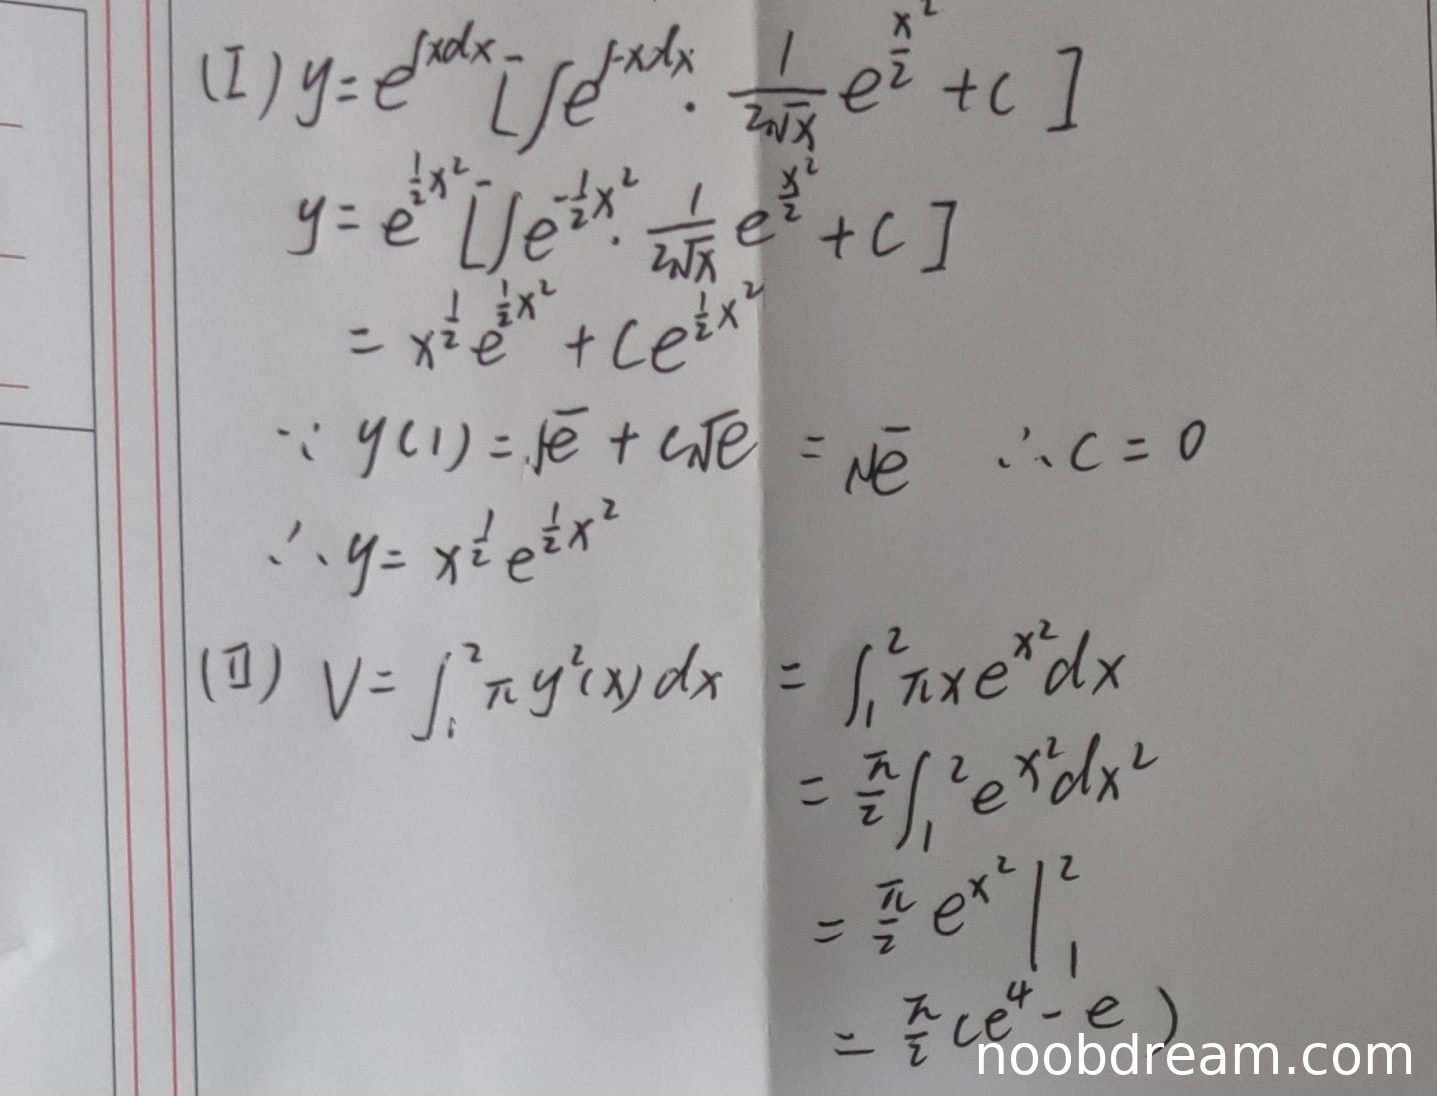 (I) y = e^{∫xdx} [∫e^{∫-xdx} · \frac{1}{2√x} e^{\frac{x^2}{2}} + c ]
y = e^{\frac{1}{2}x^2} [∫e^{-\frac{1}{2}x^2} · \frac{1}{2√x} e^{\frac{x^2}{2}} + c ]
= x^{\frac{1}{2}} e^{\frac{1}{2}x^2} + Ce^{\frac{1}{2}x^2}
∵ y(1) = √e + c√e = √e ∴ c = 0
∴ y = x^{\frac{1}{2}} e^{\frac{1}{2}x^2}
(II) V = ∫_1^2 π y^2(x) dx = ∫_1^2 πxe^{x^2}dx
= \frac{π}{2} ∫_1^2 e^{x^2}dx^2
= \frac{π}{2} e^{x^2} |_1^2
= \frac{π}{2} (e^4 - e)
noobdream.com